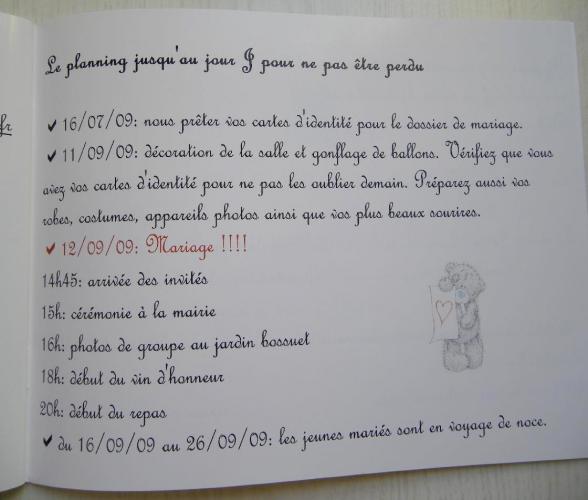 Le planning jusqu'au jour J pour ne pas être perdu
fr
✓ 16/07/09: nous prêter vos cartes d'identité pour le dossier de mariage.
✓ 11/09/09: décoration de la salle et gonflage de ballons. Vérifiez que vous
avez vos cartes d'identité pour ne pas les oublier demain. Préparez aussi vos
robes, costumes, appareils photos ainsi que vos plus beaux sourires.
✓ 12/09/09: Mariage !!!!
14h45: arrivée des invités
15h: cérémonie à la mairie
16h: photos de groupe au jardin bossuet
18h: début du vin d'honneur
20h: début du repas
✓ du 16/09/09 au 26/09/09: les jeunes mariés sont en voyage de noce.